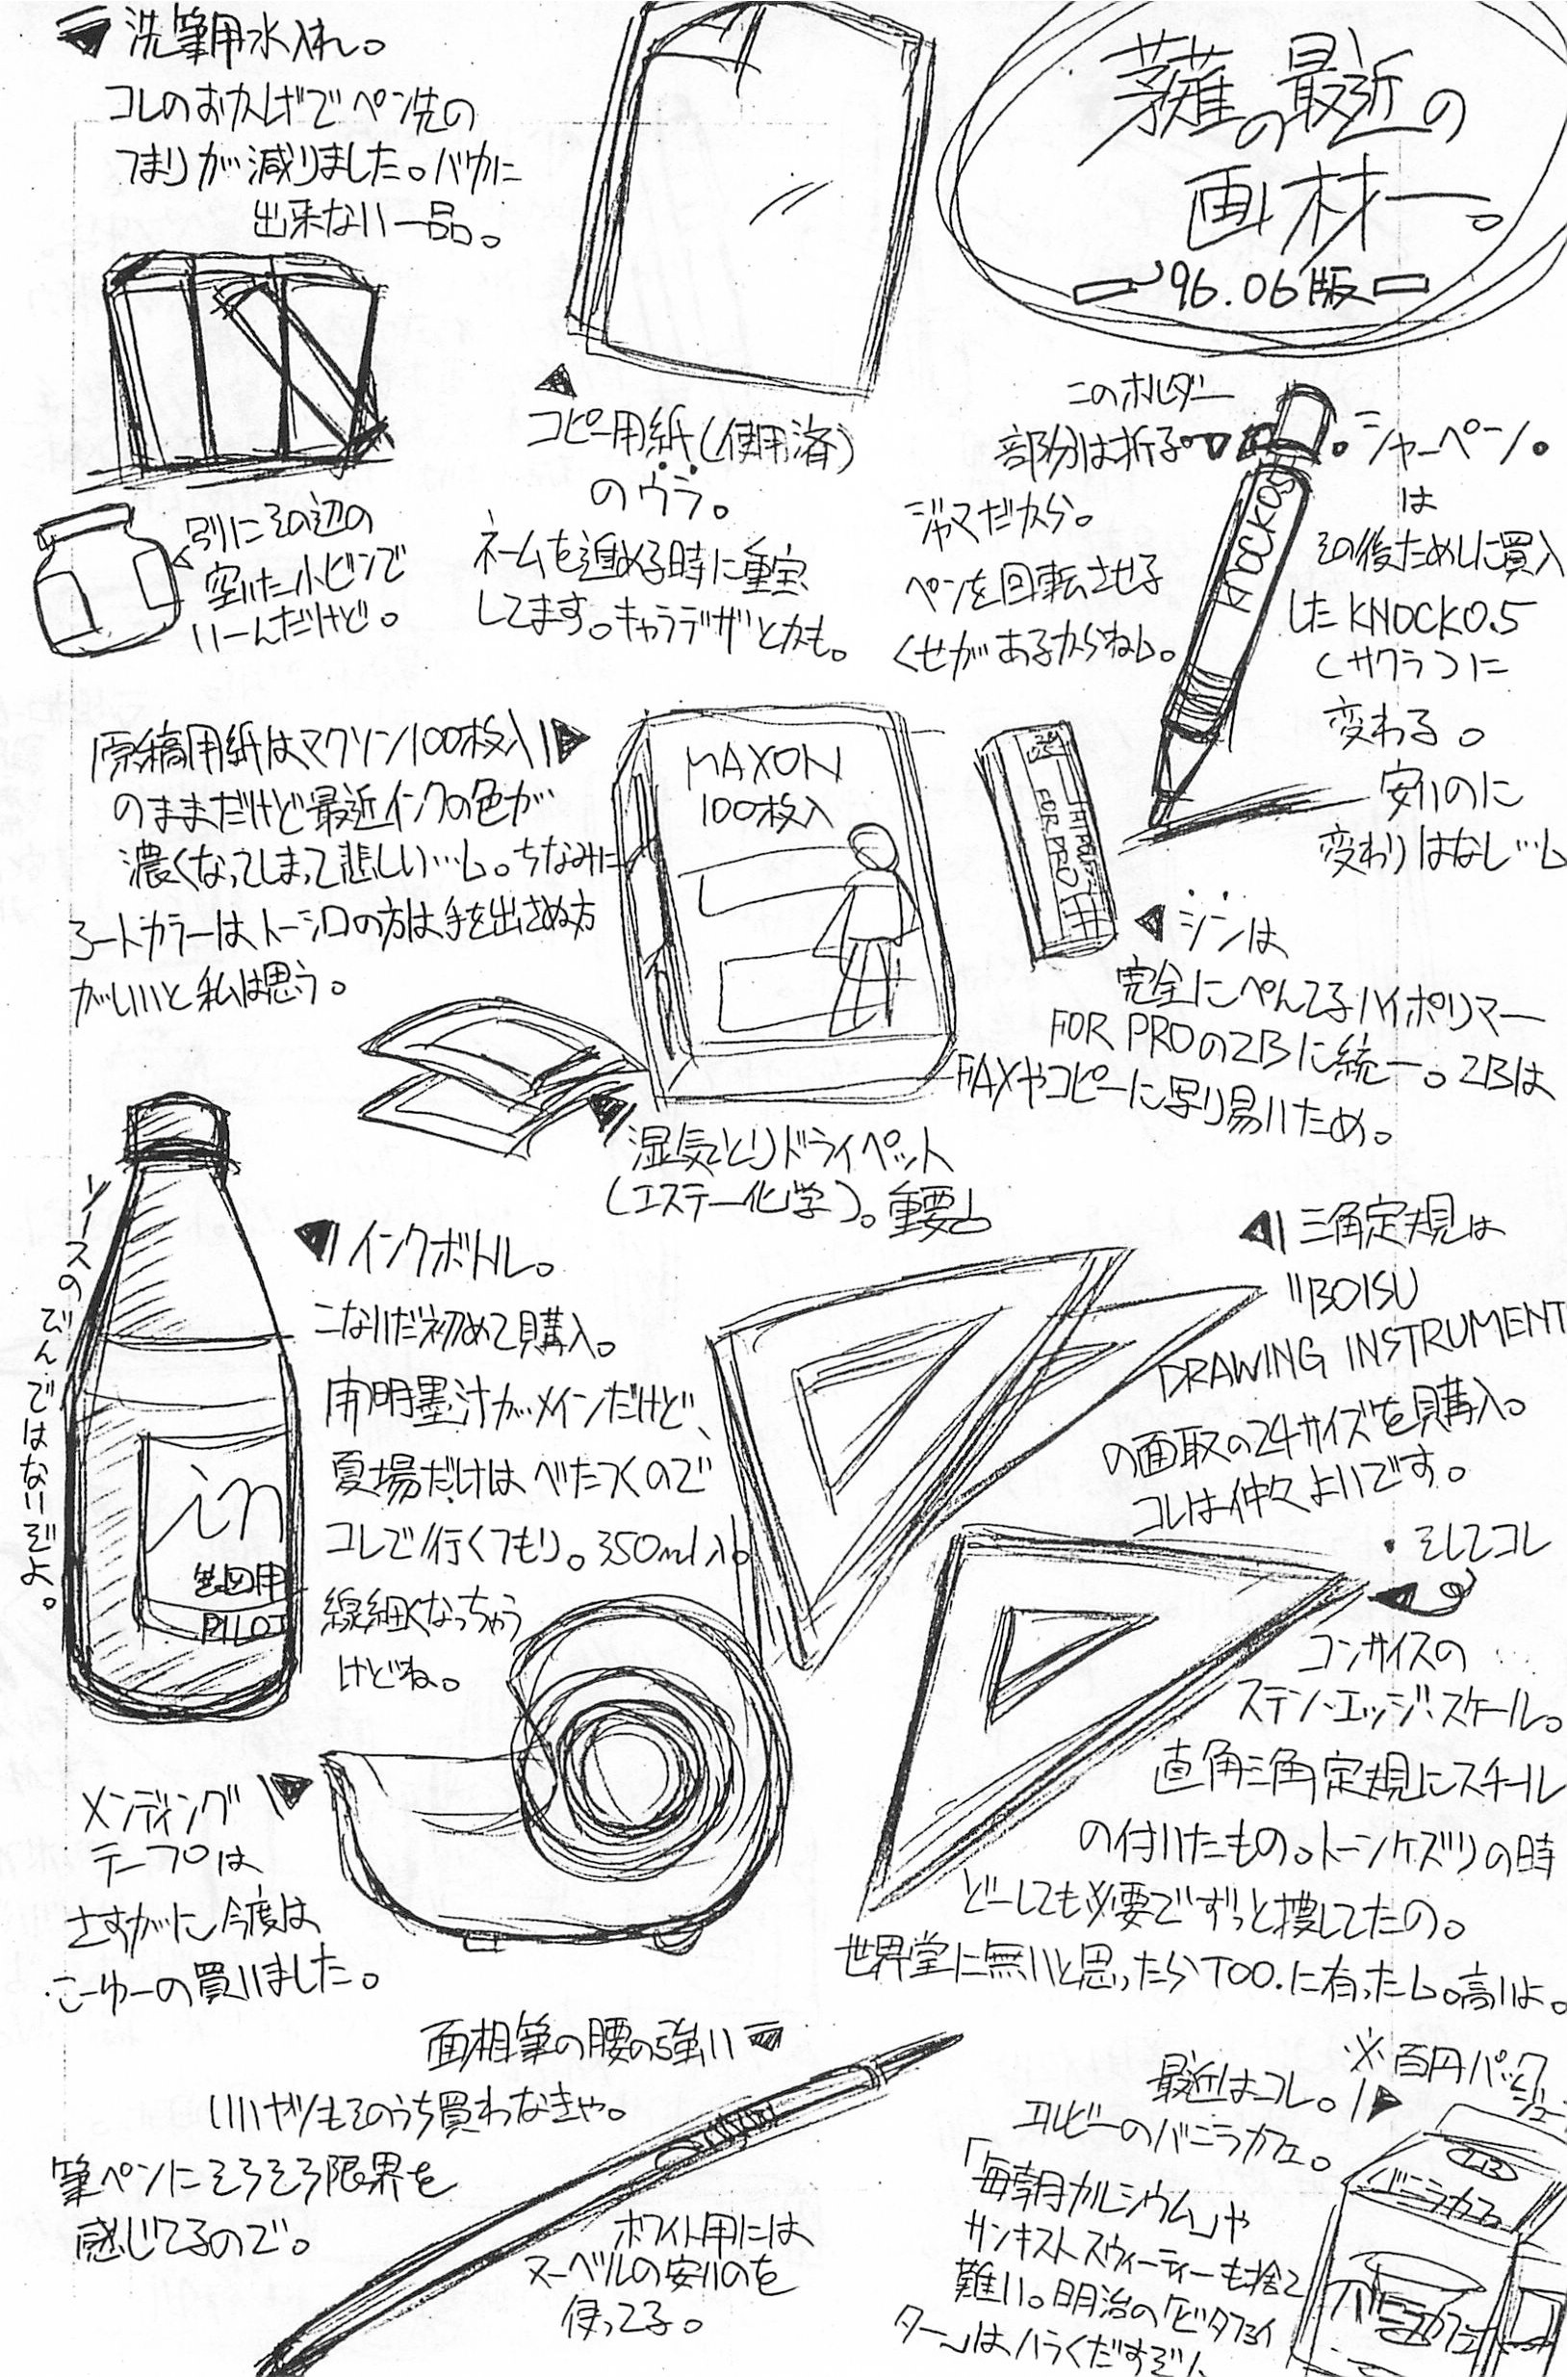 洗筆用水入れ。
コレのおかげでペン先の
つまりが減りました。バカに
出来ない一品。
別にその辺の
空いた小ビンで
いーんだけど。
コピー用紙(使用済)
のウラ。
ネームを進める時に重宝
してます。キャラデザとかも。
の最近の
画材ー。
'96.06版
このホルダー
部分は折る。
ジャマだから。
ペンを回転させる
くせがあるからねっ。
シャーペン。
は
その後ためしに買入
したKNOCK0.5
(サクラ)に
変わる。
安いのに
変わりはなし…っ
KNOCK0.5
原稿用紙はマクソン100枚入り
のままだけど最近インクの色が
濃くなってしまって悲しい…っ。ちなみに
ートカラーは、トーシロの方は手を出さぬ方
がいいと私は思う。
MAXON
100枚入
FOR PRO
シンは
完全にぺんてるハイポリマー
FOR PROの2Bに統一。2Bは
FAXやコピーに写り易いため。
湿気とりドライペット
(エステー化学)。重要っ
ソースのびんではないぞよ。
in
製図用
PILOT
インクボトル。
こないだ初めて購入。
開明墨汁がメインだけど、
夏場だけはべたつくので
コレで行くつもり。350ml入り。
線細くなっちゃう
けどね。
三角定規は
BOISU
DRAWING INSTRUMENT
の面取の24サイズを購入。
コレは仲々よいです。
・そしてコレ
コンサイスの
ステン・エッジ・スケール。
直角三角定規にスチール
の付いたもの。トーンケズリの時
どーしても必要でずっと捜してたの。
世界堂に無いと思ったらTOO.に有ったっ。高いよ。
メンディング
テープは
さすがに今度は
こーゆーの買いました。
面相筆の腰の強い
いいヤツもそのうち買わなきゃ。
筆ペンにそろそろ限界を
感じてるので。
ホワイト用には
ヌーベルの安いのを
使ってる。
※百円パック
ジュー
最近はコレ。
エルビーのバニラカフェ。
「毎朝カルシウム」や
サンキストスウィーティーも捨て
難い。明治の「ビタファイ
ター」はハラくだすぞ
LB
バニラカフェ
バニラカフェ